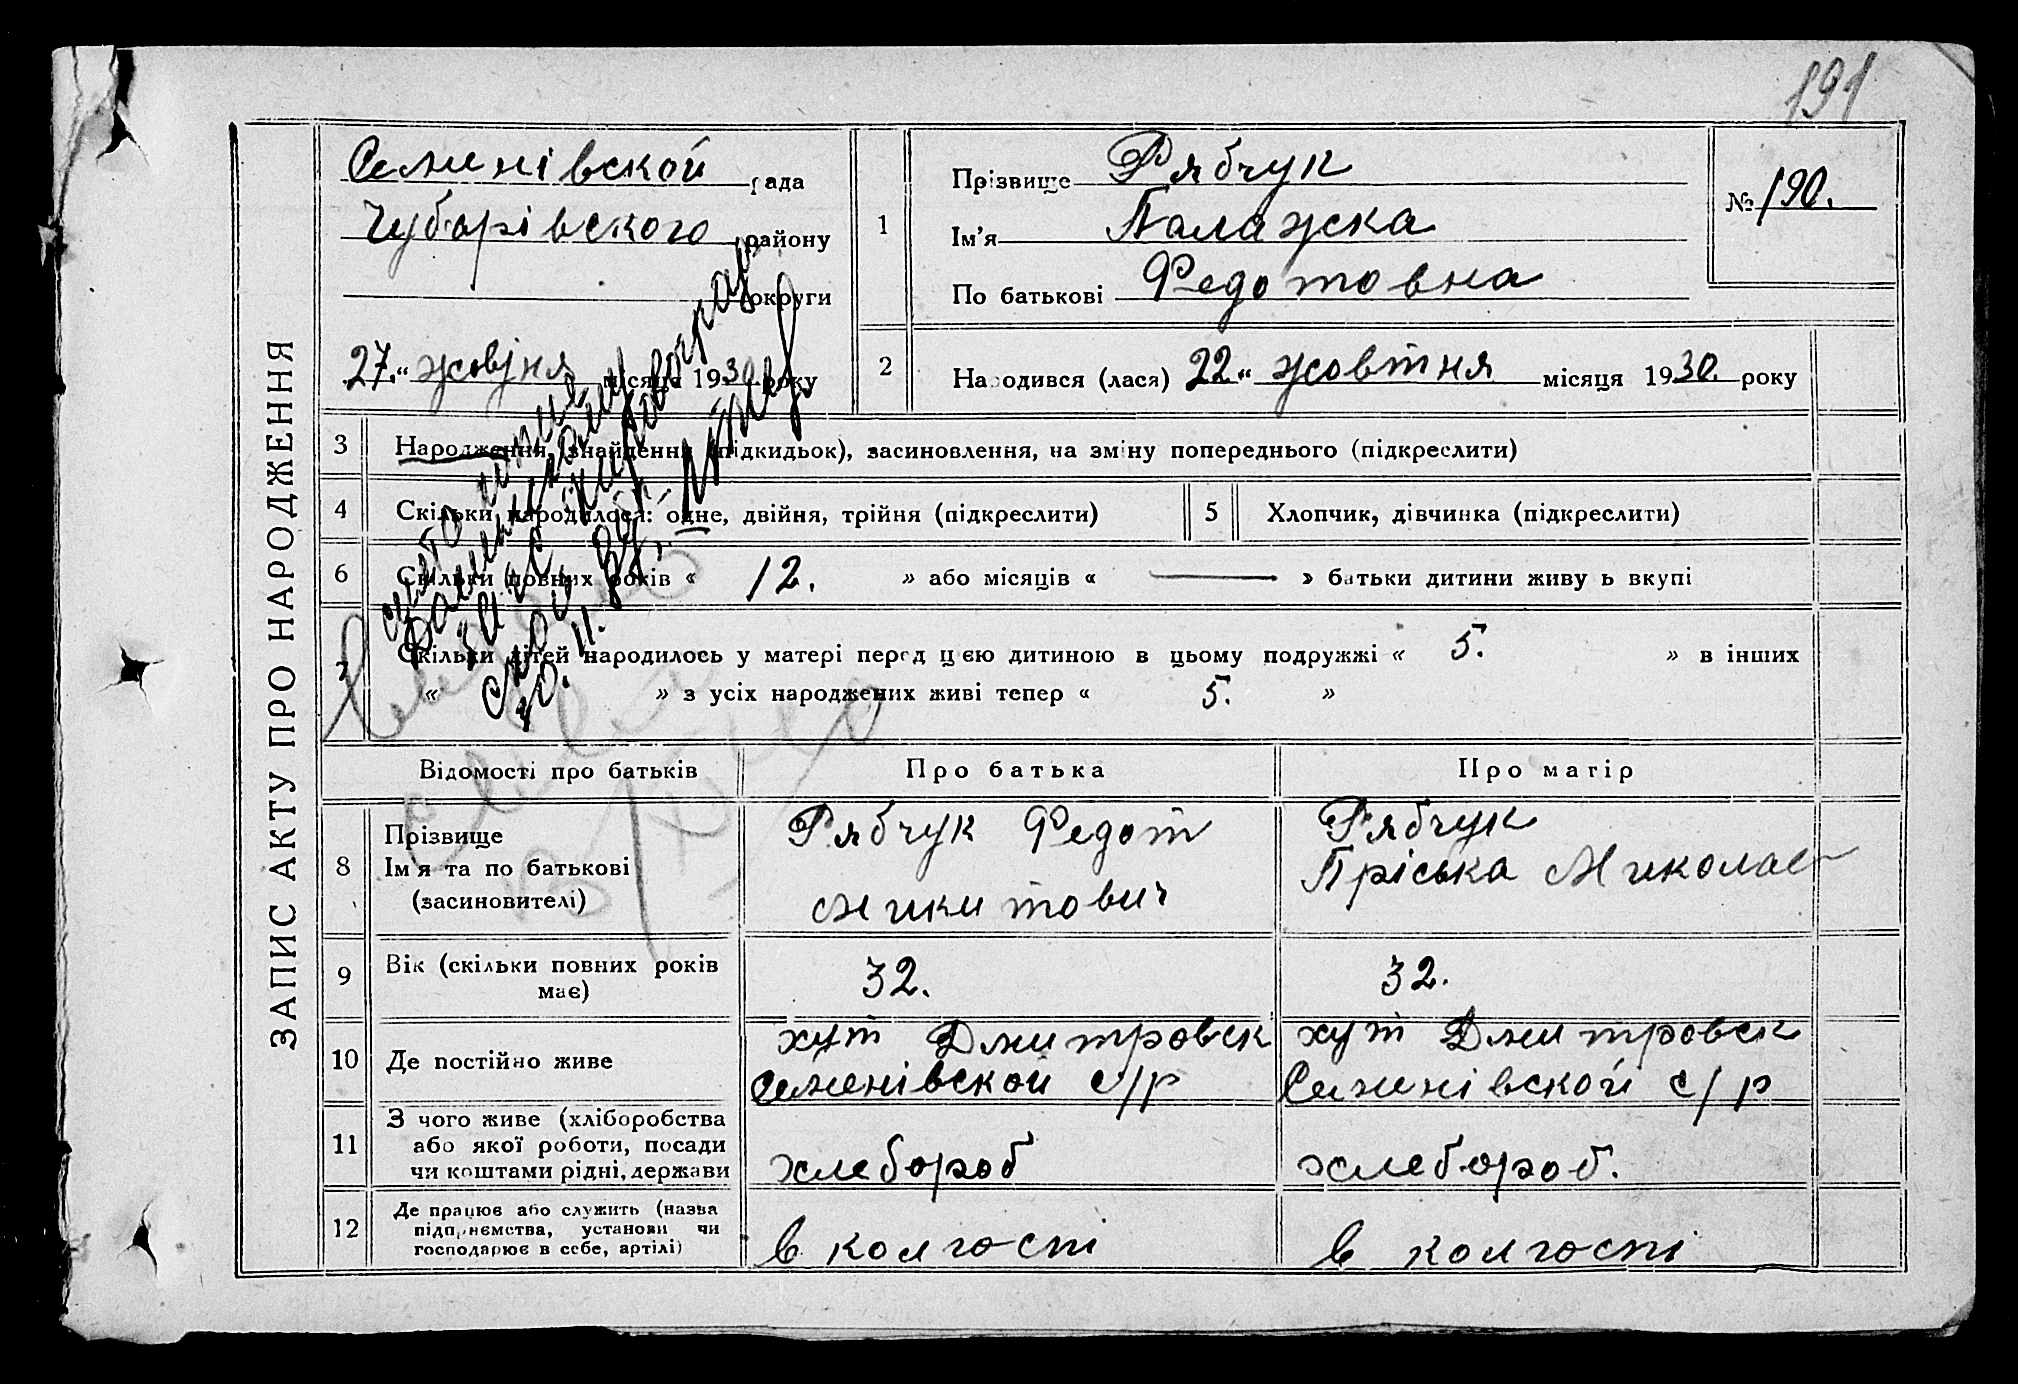 191
ЗАПИС АКТУ ПРО НАРОДЖЕННЯ
Семенівской рада
Чубарівского району
округи
27 " жовтня місяця 1930 року
1
Прізвище Рябчук
Ім'я Палажка
По батькові Федотовна
№ 190.
2
Народився (лася) 22 " жовтня місяця 1930. року
3 Народження, знайдення (підкидьок), засиновлення, на зміну попереднього (підкреслити)
4 Скільки народилося: одне, двійня, трійня (підкреслити)
5 Хлопчик, дівчинка (підкреслити)
6 Скільки повних років « 12. » або місяців « — » батьки дитини живуть вкупі
7 Скільки дітей народилось у матері перед цією дитиною в цьому подружжі « 5. » в інших
« » з усіх народжених живі тепер « 5. »
Відомості про батьків Про батька Про матір
8 Прізвище
Ім'я та по батькові
(засиновителі)
Рябчук Федот
Микитович
Рябчук
Пріська Миколаев
9 Вік (скільки повних років
має)
32. 32.
10 Де постійно живе
хут Дмитровск
Семенівской с/р
хут Дмитровск
Семенівской с/р
11 З чого живе (хліборобства
або якої роботи, посади
чи коштами рідні, держави
хлебороб хлебороб.
12 Де працює або служить (назва
підприємства, установи чи
господарює в себе, артілі)
в колгоспі в колгоспі